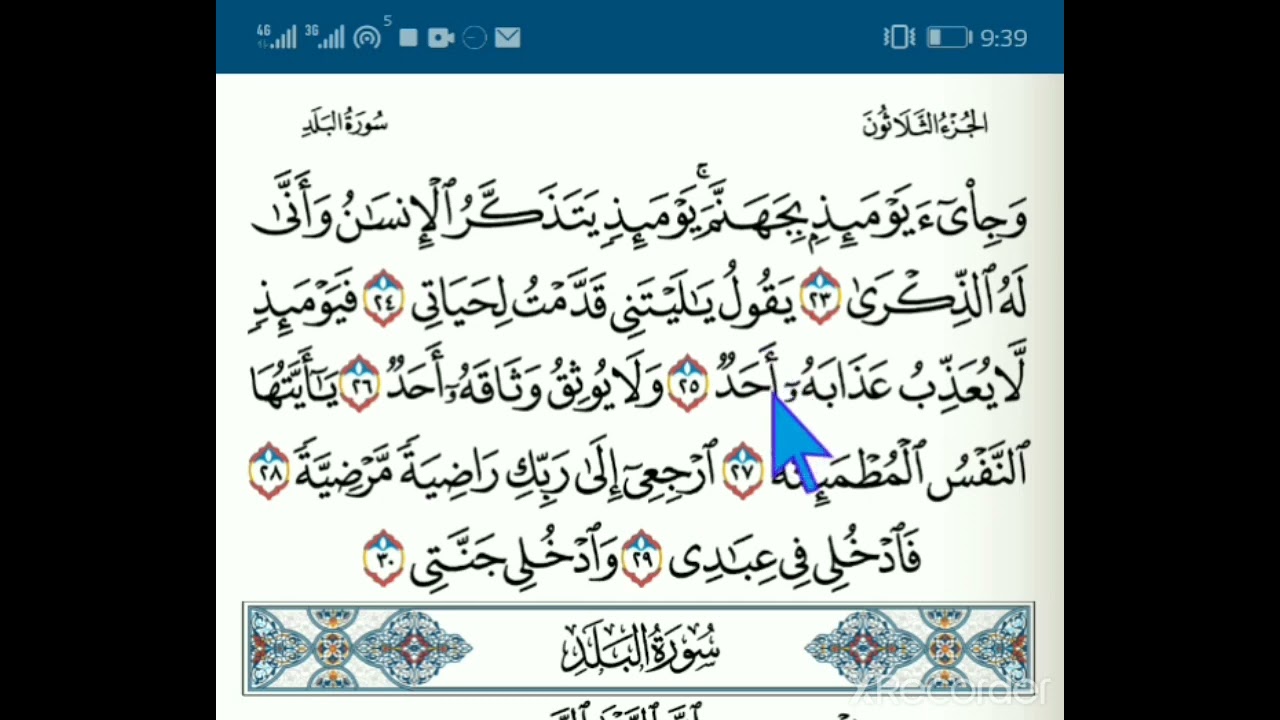 4G 3G 5 9:39
الجُزْءُ الثَّلَاثُونَ سُورَةُ البَلَدِ
وَجِا۟ىٓءَ يَوْمَئِذِۭ بِجَهَنَّمَ ۚ يَوْمَئِذٍ يَتَذَكَّرُ ٱلْإِنسَٰنُ وَأَنَّىٰ
لَهُ ٱلذِّكْرَىٰ ٢٣ يَقُولُ يَٰلَيْتَنِى قَدَّمْتُ لِحَيَاتِى ٢٤ فَيَوْمَئِذٍ
لَّا يُعَذِّبُ عَذَابَهُۥٓ أَحَدٌ ٢٥ وَلَا يُوثِقُ وَثَاقَهُۥٓ أَحَدٌ ٢٦ يَٰٓأَيَّتُهَا
ٱلنَّفْسُ ٱلْمُطْمَئِنَّةُ ٢٧ ٱرْجِعِىٓ إِلَىٰ رَبِّكِ رَاضِيَةً مَّرْضِيَّةً ٢٨
فَٱدْخُلِى فِى عِبَٰدِى ٢٩ وَٱدْخُلِى جَنَّتِى ٣٠
سُورَةُ البَلَدِ
XRecorder